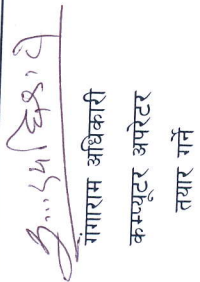 गंगाराम अधिकारी
कम्प्यूटर अपरेटर
तयार गर्ने